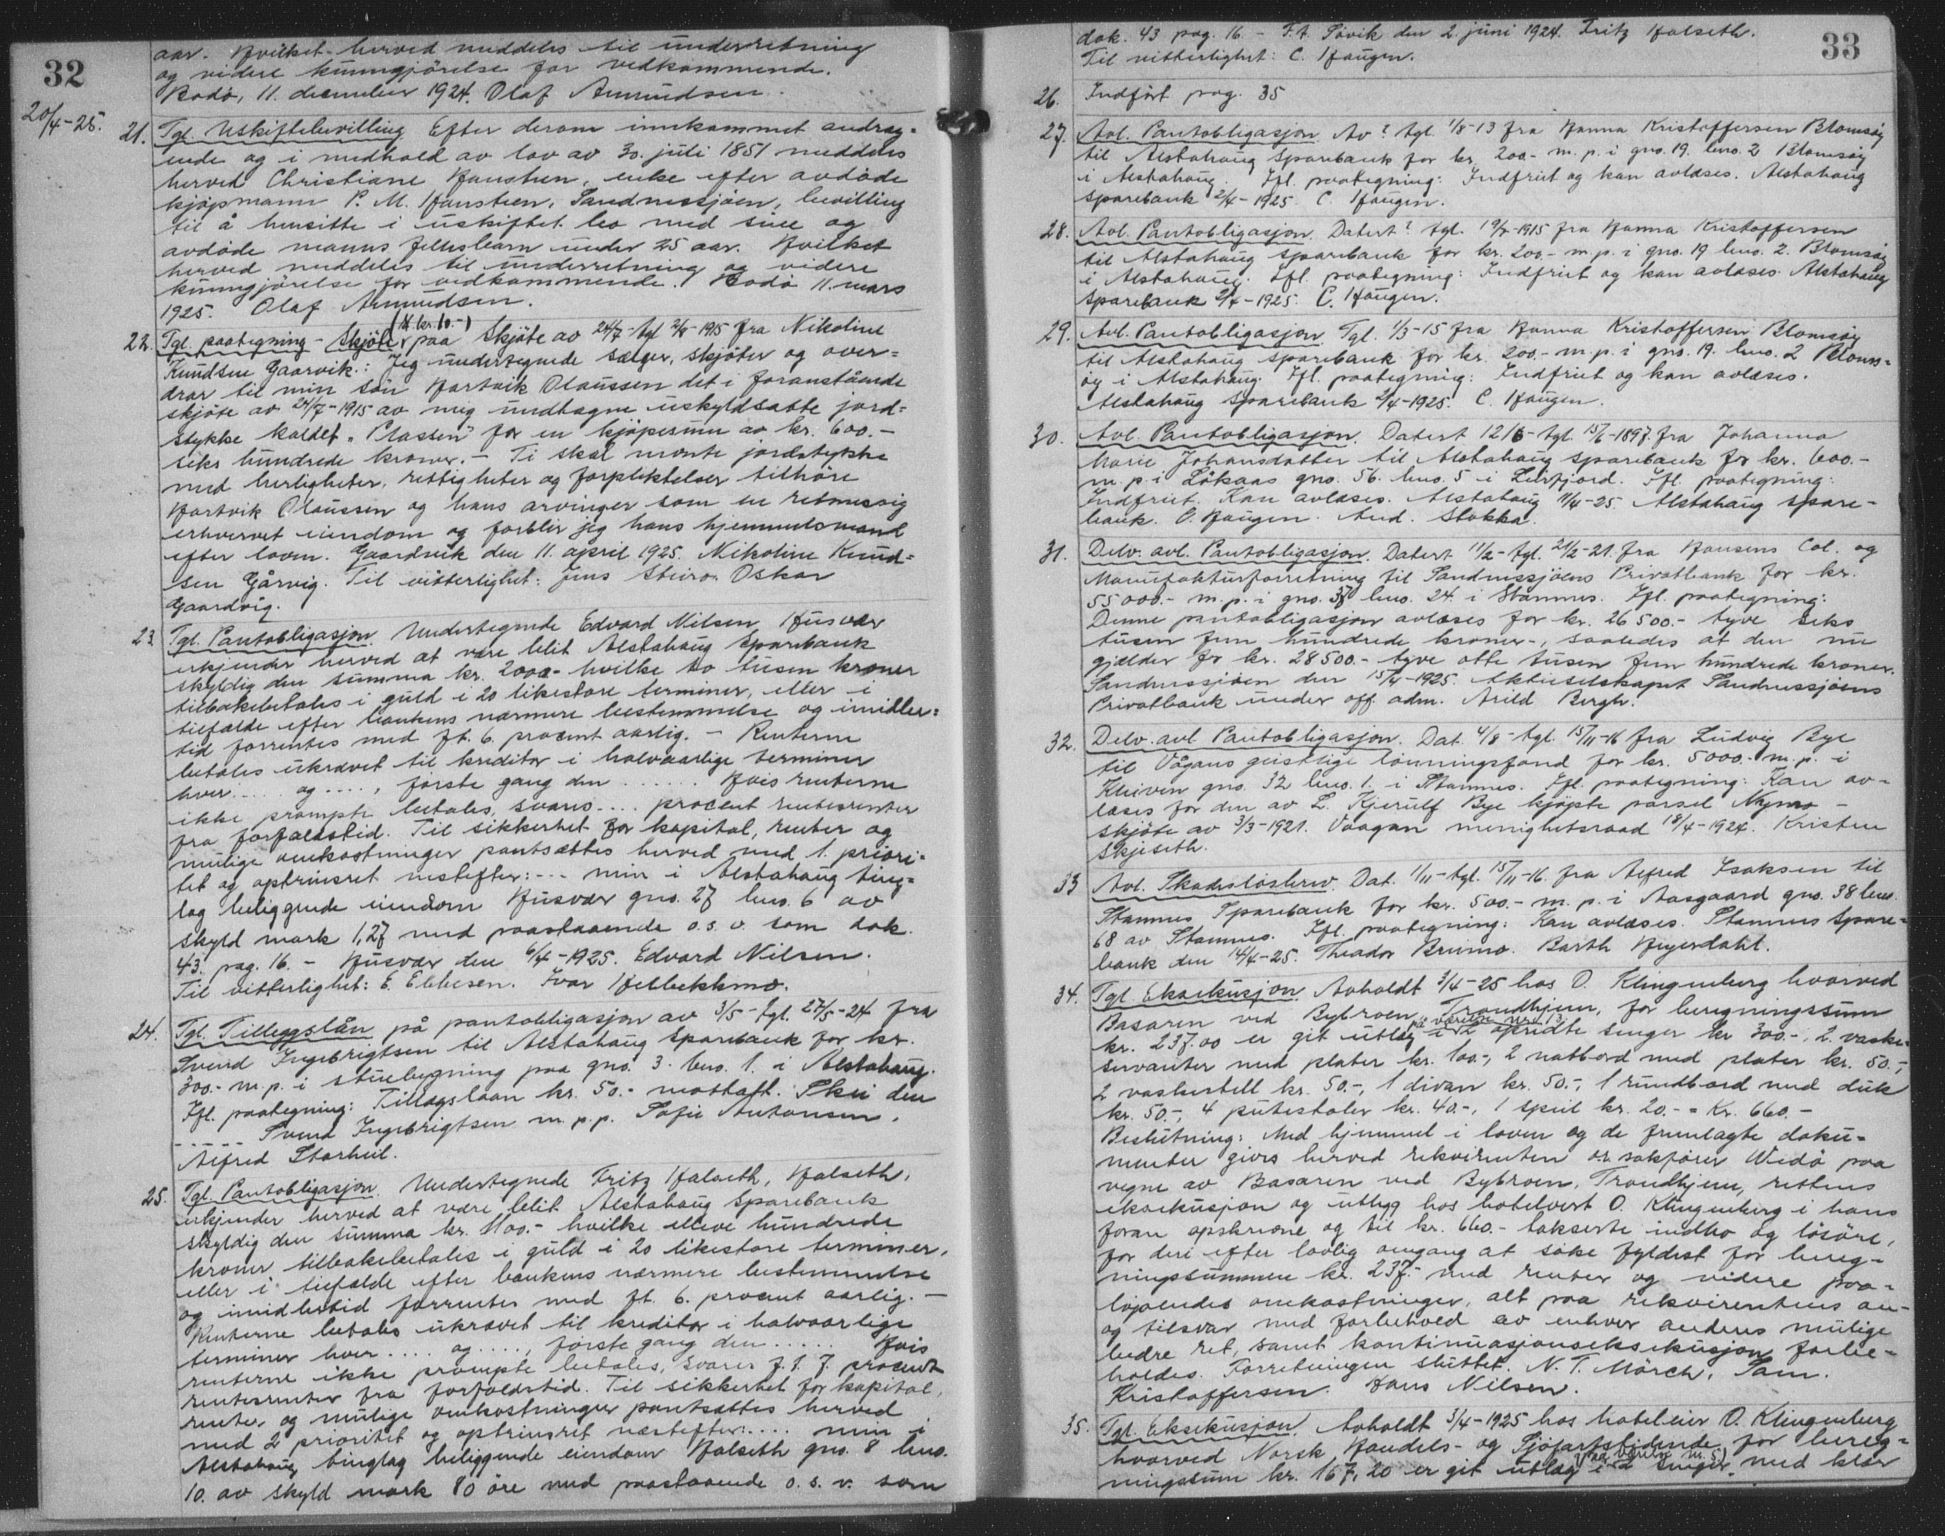 32
aar. Hvilket herved meddeles til underretning
og videre kunngjörelse for vedkommende.
Bodö, 11. december 1924. Olaf Amundsen.
20/4-25.
21. Tgl. Uskiftebevilling Efter derom innkommet andrag-
ende og i medhold av lov av 30. juli 1851 meddeles
herved Christiane Hanstien, enke efter avdöde
kjöpmann P. M. Hanstien, Sandnessjöen, bevilling
til å hensitte i uskiftet bo med sine og
avdöde manns fellesbarn under 25 aar. Hvilket
herved meddeles til underretning og videre
kunngjörelse for vedkommende. Bodö 11. mars
1925. Olaf Amundsen.
(St. kr. 10.-)
22. Tgl. paategning - Skjöte paa skjöte av 24/7- tgl 2/8-1915 fra Nikoline
Knudsen Gaarvik: Jeg undertegnede sælger, skjöter og over-
drar til min sön Hartvik Olaussen det i foranstående
skjöte av 24/7-1915 av mig undtagne uskyldsatte jord-
stykke kaldet "Plassen" for en kjöpesum av kr. 600.-
seks hundrede kroner. - Ti skal nævnte jordstykke
med herligheter, rettigheter og forpliktelser tilhöre
Hartvik Olaussen og hans arvinger som en retmessig
erhvervet eiendom og forblir jeg hans hjemmelsmand
efter loven. Gaardvik den 11. april 1925. Nikoline Knud-
sen Gårvig. Til vitterlighet: Jens Steiro. Oskar
Gaardvig.
23. Tgl. Pantobligasjon. Undertegnede Edvard Nilsen Husvær
erkjender herved at være blit Alstahaug Sparebank
skyldig den summa kr. 2000.- hvilke to tusen kroner
tilbakebetales i guld i 20 likestore terminer, eller i
tilfælde efter bankens nærmere bestemmelse og imidler-
tid forrentes med f.t. 6. procent aarlig. - Renterne
betales ukrævet til kreditor i halvaarlige terminer
hver .... og ...., förste gang den ...... Hvis renterne
ikke prompte betales, svares .... procent rentesrenter
fra forfaldstid. Til sikkerhet for kapital, renter og
mulige omkostninger pantsættes herved med 1. priori-
tet og optrinsret nestefter: --- min i Alstahaug ting-
lag beliggende eiendom Husvær gno. 27 bno. 6 av
skyld mark 1,27 med paastaaende o.s.v. som dok.
43. pag. 16. - Husvær den 6/4-1925. Edvard Nilsen.
Til vitterlighet: E. Ebbesen. Ivar Helbekkmo.
24. Tgl. Tilleggslån på pantobligasjon av 3/5- tgl. 27/5-24 fra
Svend Ingebrigtsen til Alstahaug Sparebank for kr.
300.- m.p. i stuebygning paa gno. 3. bno. 1. i Alstahaug.
Ifl. paategning: Tillægslaan kr. 50.- mottatt. Skei den
..... Svend Ingebrigtsen m.p.p. Sofie Antonsen.
Alfred Storheil.
25. Tgl. Pantobligasjon. Undertegnede Fritz Halseth, Halseth,
erkjender herved at være blit Alstahaug Sparebank
skyldig den summa kr. 1100.- hvilke elleve hundrede
kroner tilbakebetales i guld i 20 likestore terminer,
eller i tilfælde efter bankens nærmere bestemmelse
og imidlertid forrentes med f.t. 6. procent aarlig. -
Renterne betales ukrævet til kreditor i halvaarlige
terminer hver .... og ...., förste gang den ..... Hvis
renterne ikke prompte betales, svares f.t. 7. procent
rentesrenter fra forfaldstid. Til sikkerhet for kapital,
renter og mulige omkostninger pantsættes herved
med 2 prioritet og optrinsret næstefter: .... min i
Alstahaug tinglag beliggende eiendom Halseth gno. 8 bno.
10. av skyld mark 80 öre med paastaaende o.s.v. som
33
dok. 43 pag. 16. - F.t. Sövik den 2. juni 1924. Fritz Halseth.
Til vitterlighet: C. Haugen.
26. Indfört pag. 35
27. Avl. Pantobligasjon. Av ? tgl. 1/8-13 fra Hanna Kristoffersen Blomsöy
til Alstahaug Sparebank for kr. 200.- m.p. i gno. 19. bno. 2 Blomsöy
i Alstahaug. Ifl. paategning: Indfriet og kan avlæses. Alstahaug
Sparebank 2/4-1925. C. Haugen.
28. Avl. Pantobligasjon. Datert ? tgl. 19/7-1915 fra Hanna Kristoffersen
til Alstahaug Sparebank for kr. 200.- m.p. i gno. 19 bno. 2. Blomsöy
i Alstahaug. Ifl. paategning: Indfriet og kan avlæses. Alstahaug
Sparebank 2/4-1925. C. Haugen.
29. Avl. Pantobligasjon. Tgl. 1/3-15 fra Hanna Kristoffersen Blomsöy
til Alstahaug Sparebank for kr. 200.- m.p. i gno. 19. bno. 2 Bloms-
öy i Alstahaug. Ifl. paategning: Indfriet og kan avlæses.
Alstahaug Sparebank 2/4-1925. C. Haugen.
30. Avl. Pantobligasjon. Datert 12/6- tgl. 15/6-1897. fra Johanna
Marie Johansdatter til Alstahaug Sparebank for kr. 600.-
m.p. i Lökaas gno. 56. bno. 5 i Leirfjord. Ifl. paategning:
Indfriet. Kan avlæses. Alstahaug 11/4-25. Alstahaug Spare-
bank. C. Haugen. And. Stokka.
31. Delv. avl. Pantobligasjon. Datert 11/2- tgl. 21/2-21. fra Hansens Col. og
Manufakturforretning til Sandnessjöens Privatbank for kr.
55000.- m.p. i gno. 37 bno. 24. i Stamnes. Ifl. paategning:
Denne pantobligasjon avlæses for kr. 26500.- tyve seks
tusen fem hundrede kroner -, saaledes at den nu
gjælder for kr. 28500.- tyve otte tusen fem hundrede kroner.
Sandnessjöen den 15/4-1925. Aktieselskapet Sandnessjöens
Privatbank under off. adm. Arild Bergh.
32. Delv. avl Pantobligasjon. Dat. 4/8- tgl. 15/11-16 fra Ludvig Bye
til Vågans geistlige lönningsfond for kr. 5000.- m.p. i
Kleiven gno. 32 bno. 1. i Stamnes. Ifl. paategning: Kan av-
læses for den av L. Kjerulf Bye kjöpte parsel Nymo -
skjöte av 3/3-1921. Vaagan menighetsraad 18/4-1924. Kristen
Skjeseth.
33 Avl. Skadeslösbrev. Dat. 1/11- tgl. 15/11-16. fra Alfred Isaksen til
Stamnes Sparebank for kr. 500.- m.p. i Aasgaard gno. 38 bno.
68 av Stamnes. Ifl. paategning: Kan avlæses. Stamnes Spare-
bank den 14/4-25. Theodor Brinmo. Barth Heyerdahl.
34. Tgl. Eksekusjon. Avholdt 3/4-25 hos O. Klingenberg hvorved
Basaren ved Bybroen, Trondhjem, for beregningssum
kr. 237.00 er git utlæg (på værelse nr. 3) i 2 opredte senger kr 300.-, 2 vaske-
servanter med plater kr. 100.-, 2 natbord med plater kr. 50.-,
2 vaskestell kr. 50.-, 1 divan kr. 50.-, 1 rundbord med duk
kr. 50.-, 4 putestoler kr. 40.-, 1 speil kr. 20.- = Kr. 660.-
Beslutning: Med hjemmel i loven og de fremlagte doku-
menter gives herved rekvirenten or. sakförer Wedö paa
vegne av Basaren ved Bybroen, Trondhjem, rettens
eksekusjon og utlegg hos hotelvert O. Klingenberg i hans
foran opskrevne og til kr. 660.- takserte indbo og lösöre,
for deri efter lovlig omgang at söke fyldest for bereg-
ningssummen kr. 237.- med renter og videre paa-
löpendes omkostninger, alt paa rekvirentens an-
og tilsvar med forbehold av enhver andens mulige
bedre ret, samt kontinuasjonseksekusjon forbe-
holdes. Forretningen sluttet. N. T. Mörch. Sam.
Kristoffersen. Hans Nilsen.
35. Tgl. Eksekusjon. Avholdt 3/4-1925 hos hoteleier O. Klingenberg
hvorved Norsk Handels- og Sjöfartstidende for bereg-
ningssum kr. 167.20 er git utlæg (paa værelse nr. 5) i 2 senger med klær